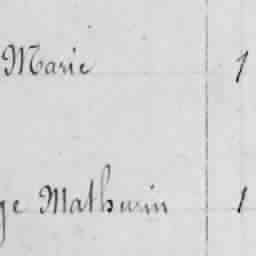 Marie 1
ge Mathurin 1